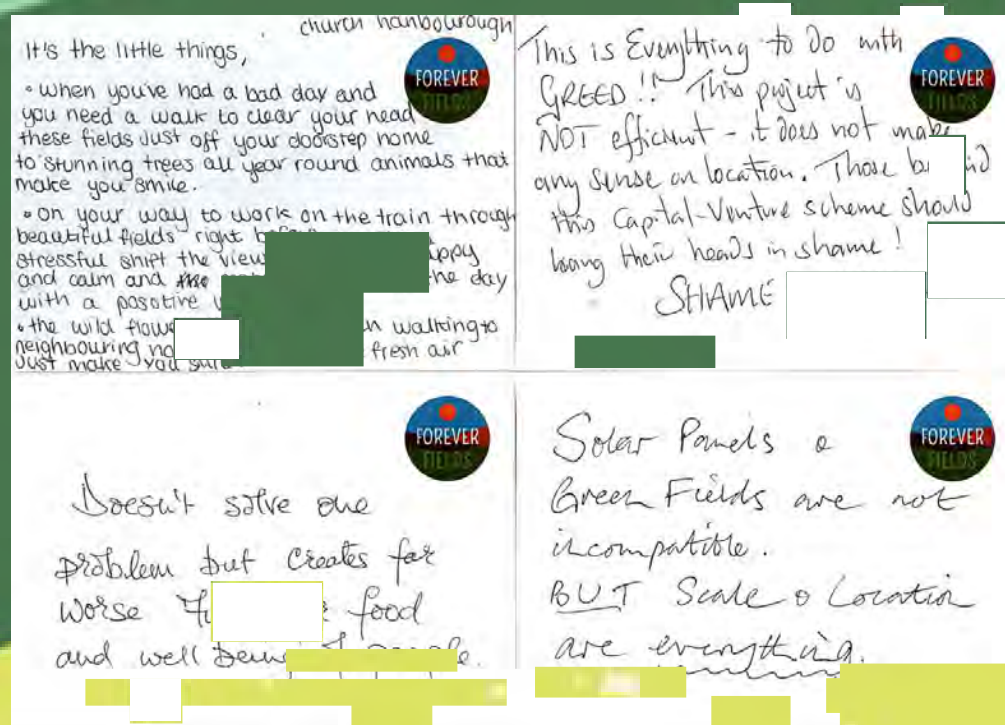 church hanbourough
It's the little things,
FOREVER
FIELDS
• when you've had a bad day and
you need a walk to clear your head
these fields just off your doorstep home
to stunning trees all year round animals that
make you smile.
• on your way to work on the train through
beautiful fields right
stressful shift the view
and calm and the day
with a posotive
• the wild walking to
neighbouring fresh air
Just make you
This is Everything to do with
GREED!! This project is
NOT efficient - it does not make
any sense on location. Those
this Capital-Venture scheme should
hang their heads in shame!
SHAME
FOREVER
FIELDS
Doesn't solve one
problem but creates far
worse food
and well
FOREVER
FIELDS
Solar Panels &
Green Fields are not
incompatible.
BUT Scale & Location
are everything.
FOREVER
FIELDS